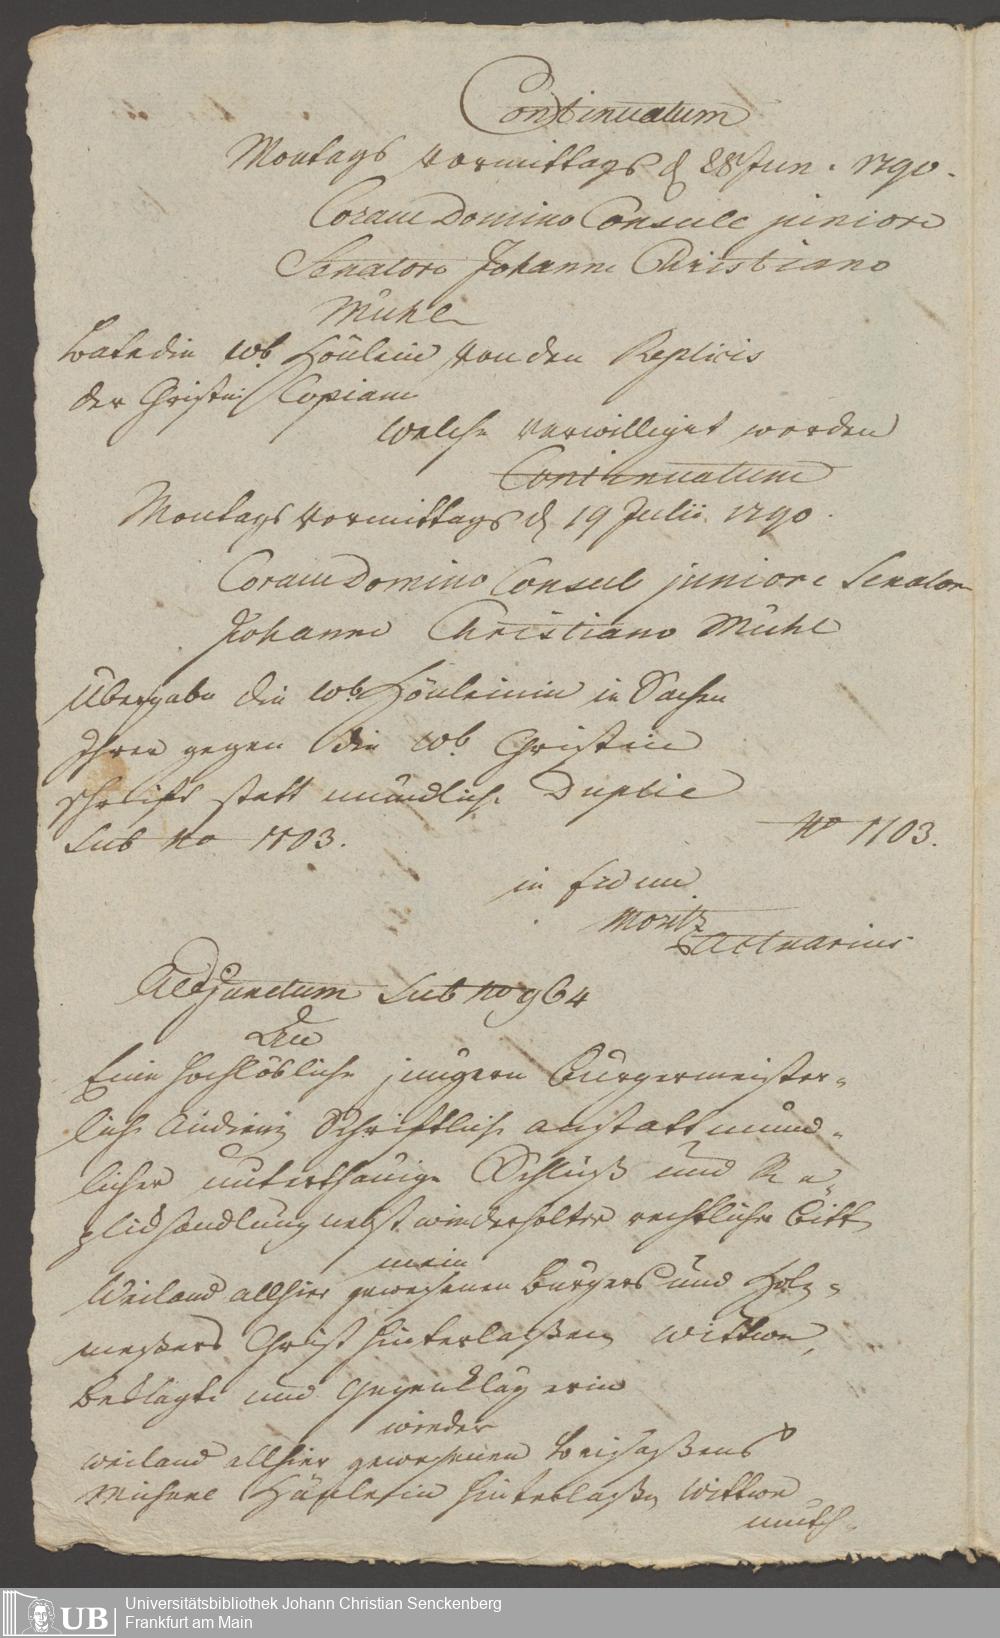 Continuatum
Montags vormittags d 28 Jun. 1790.
Coram Domino Consule juniore
Senatore Johanne Christiano
Mühl
bate die Wb. Häulein von den Replicis
der Christin Copiam
welche verwilliget worden
Continuatum
Montags vormittags d 19 Julii 1790.
Coram Domino Consule juniore Senatore
Johanne Christiano Mühl
Übergabe die Wb. Häuleinin in Sachen
Ihrer gegen die Wb. Christin
schriftl statt mündliche Duplic
Sub No 1103.
No 1103.
in fidem
Moritz
Actuarius
Adjunctum Sub No 964
An
Eine Hochlöbliche jüngern Burgermeister-
liche Audienz Schriftlich anstatt münd-
licher unterthänige Schluß und Re-
plichandlung nebst wiederholter rechtlicher Bitt
mein
Weiland allhier gewesenen Burgers und Holz-
meßers Christ hinterlaßen Wittwe,
Beklagte und Gegenklagerin
wieder
weiland allhier gewesenen Beisaßens
Michael Häulein hinterlaßen Wittwe